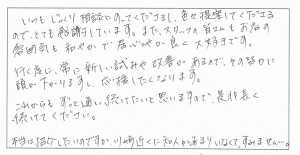 いつもじっくり相談にのってくださるし、色々提案してくださる
ので、とても感謝しています。またスタッフの皆さんもお店の
雰囲気も和やかで居心地が良く大好きです。
行く度に、常に新しい試みや改善があるので、その努力に
頭が下がりますし、応援したくなります。
これからもずっと通い続けたいと思いますので、是非長く
続けてください。
本当は紹介したいのですが、いかんせん近くに知人があまりいなくて、すみません…。